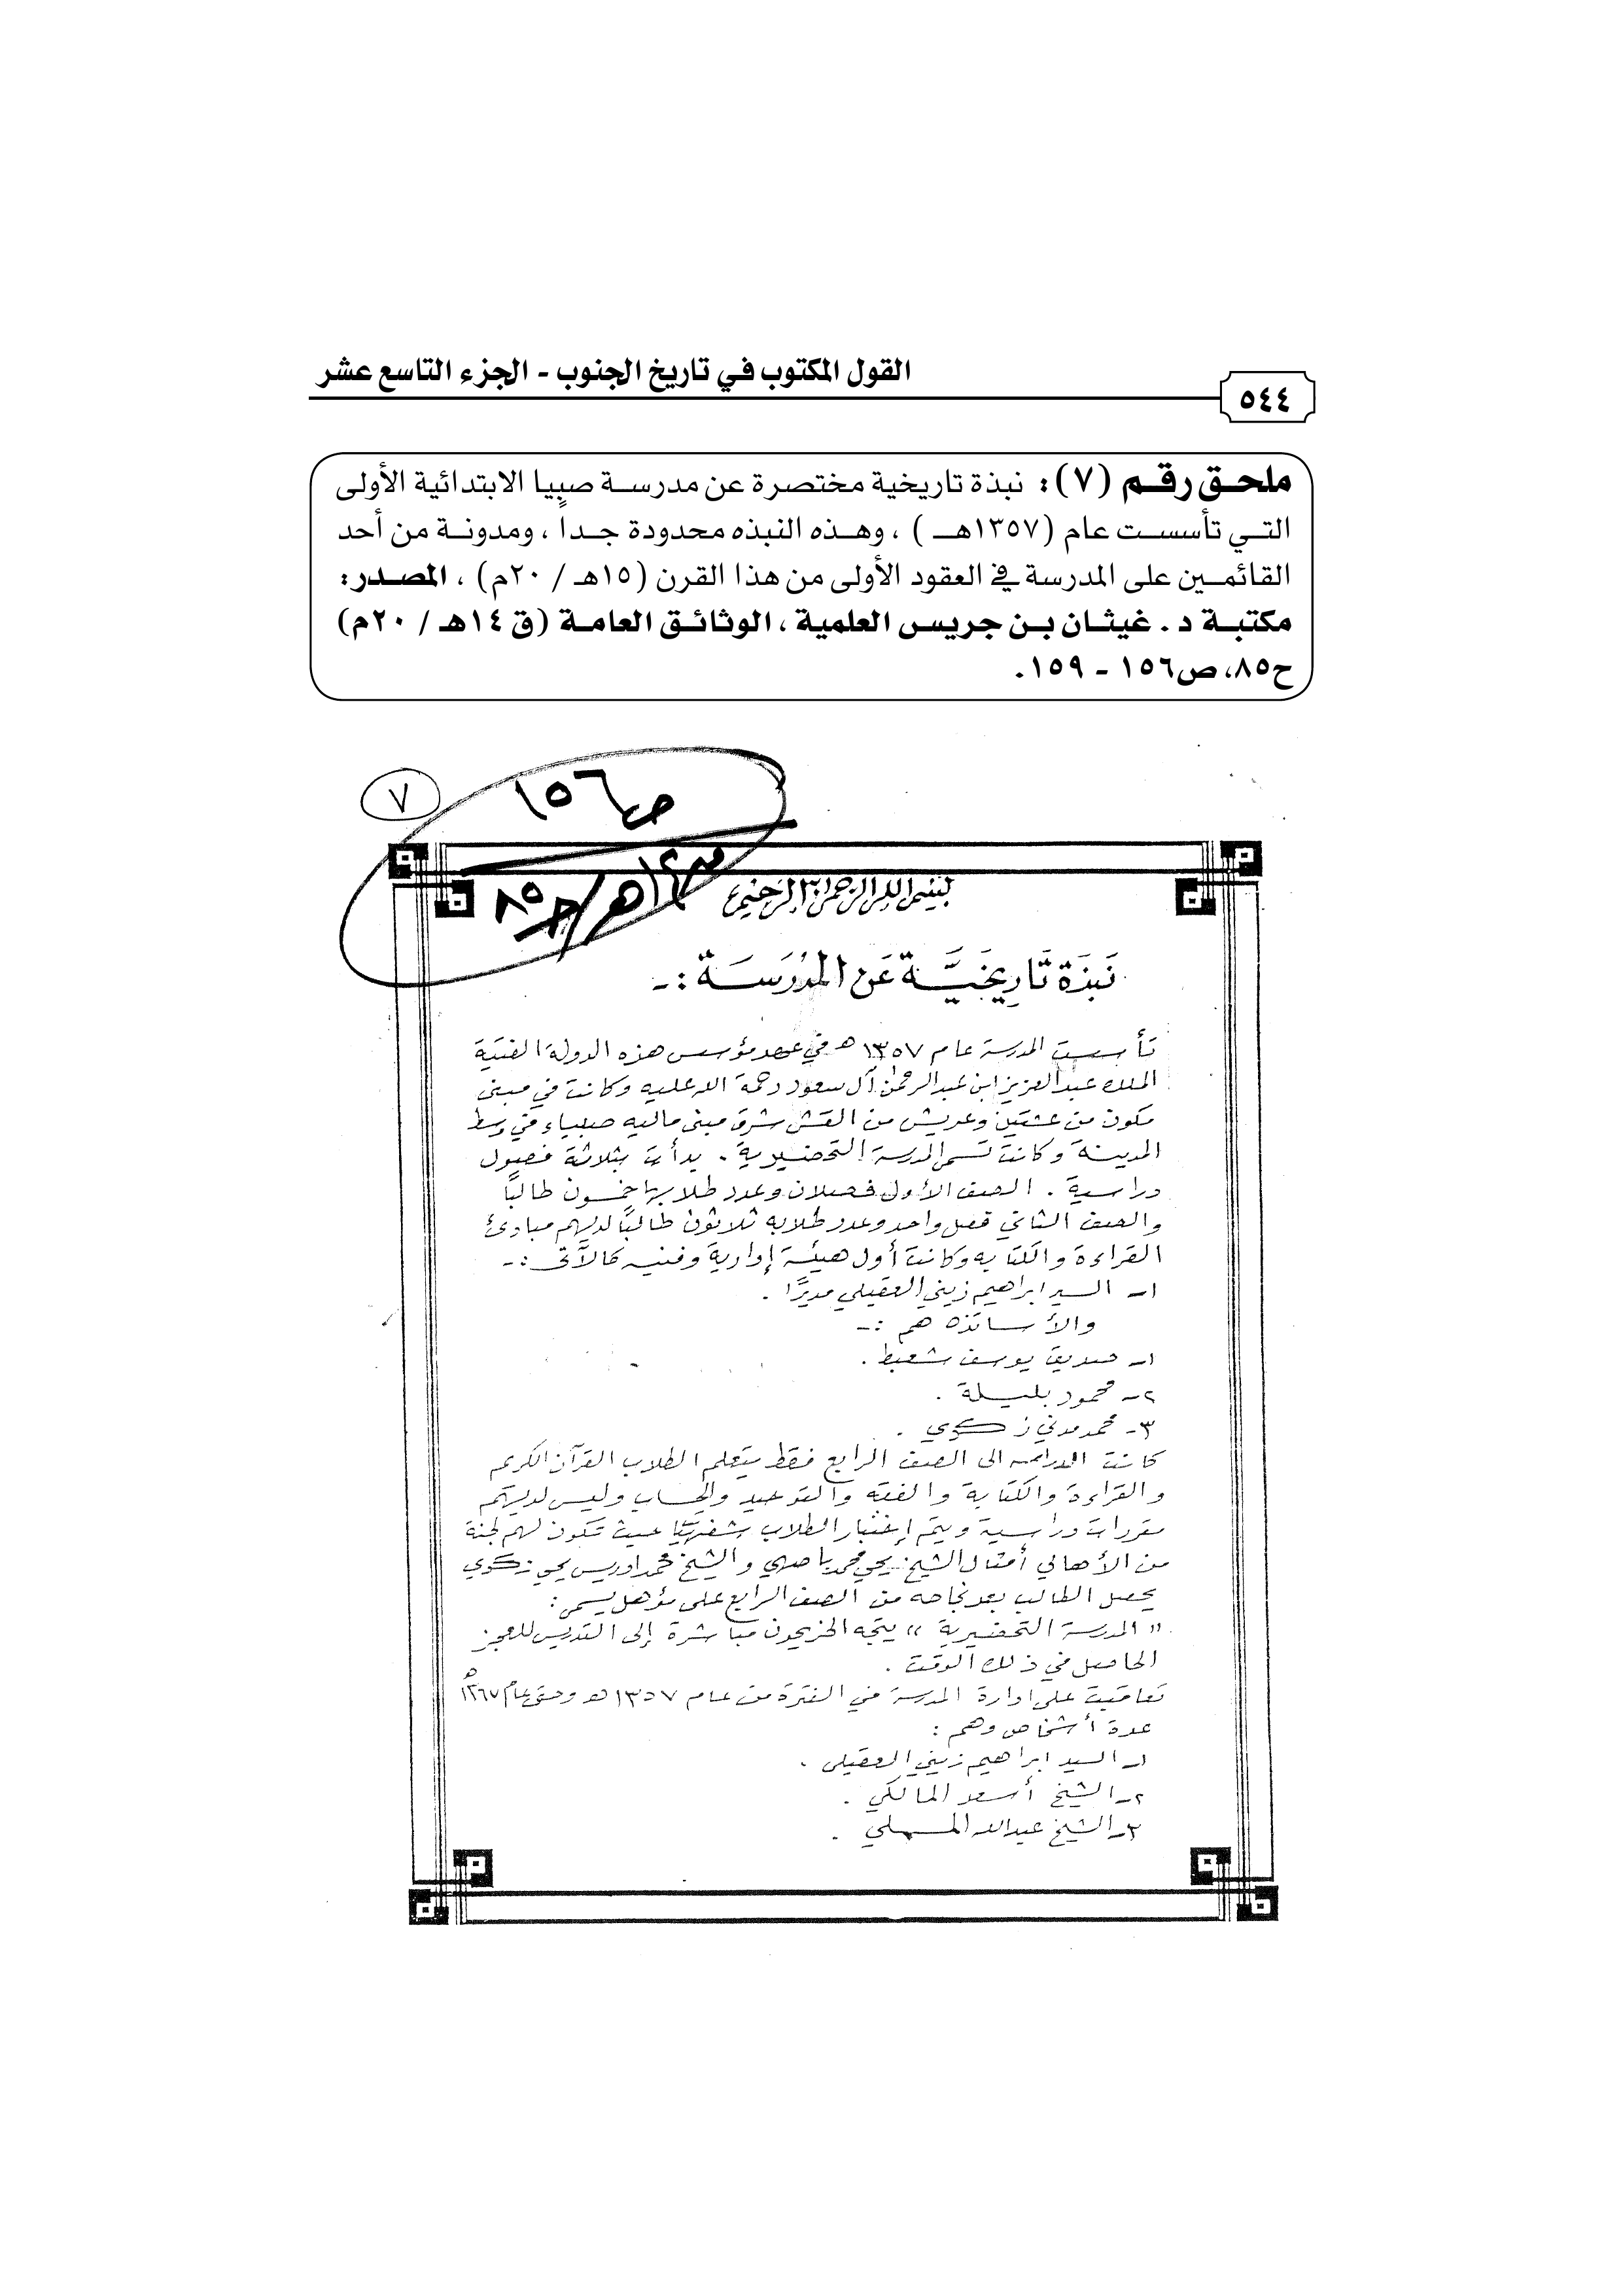 القول المكتوب في تاريخ الجنوب - الجزء التاسع عشر
٥٤٤
ملحق رقم (٧): نبذة تاريخية مختصرة عن مدرسة صبيا الابتدائية الأولى
التي تأسست عام (١٣٥٧هـ) ، وهذه النبذه محدودة جداً ، ومدونة من أحد
القائمين على المدرسة في العقود الأولى من هذا القرن (١٥هـ / ٢٠م) ، المصدر:
مكتبة د . غيثان بن جريس العلمية ، الوثائق العامة (ق ١٤هـ / ٢٠م)
ح٨٥، ص١٥٦ - ١٥٩.
٧
ص١٥٦
بسم الله الرحمن الرحيم
نبذة تاريخية عن المدرسة :-
تأسست المدرسة عام ١٣٥٧ هـ في عهد مؤسس هذه الدولة الفتية
الملك عبدالعزيز ابن عبدالرحمن آل سعود رحمة الله عليه وكانت في مبنى
مكون من عشتين وعريش من القش شرق مبنى ماليه صبياء في وسط
المدينة وكانت تسمى المدرسة التحضيرية . بدأت بثلاثة فصول
دراسية . الصف الأول فصلان وعدد طلابها خمسون طالبًا
والصف الثاني فصل واحد وعدد طلابه ثلاثون طالبًا لديهم مبادئ
القراءة والكتابه وكانت أول هيئة إدارية وفنيه كالآتى :-
١- السيد ابراهيم زيني العقيلي مديرًا .
والأساتذه هم :-
١- صديق يوسف شعبط .
٢- محمود بليلة .
٣- محمد مدني زكوي .
كانت الدراسه الى الصف الرابع فقط يتعلم الطلاب القرآن الكريم
والقراءة والكتابة والفقه والتوحيد والحساب وليس لديهم
مقررات دراسية ويتم إختبار الطلاب شفهيًا حيث تكون لهم لجنة
من الأهالي أمثال الشيخ يحي محمد باصهي والشيخ محمد ادريس يحي زكوي
يحصل الطالب بعد نجاحه من الصف الرابع على مؤهل يسمى :
" المدرسة التحضيرية " يتجه الخريجون مباشرة إلى التدريس للعجز
الحاصل في ذلك الوقت .
تعاقبت على ادارة المدرسة في الفترة من عام ١٣٥٧ هـ وحتى عام ١٣٦٧هـ
عدة أشخاص وهم :
١- السيد ابراهيم زيني العقيلى .
٢- الشيخ أسعد المالكي .
٣- الشيخ عبدالله المسهلي .